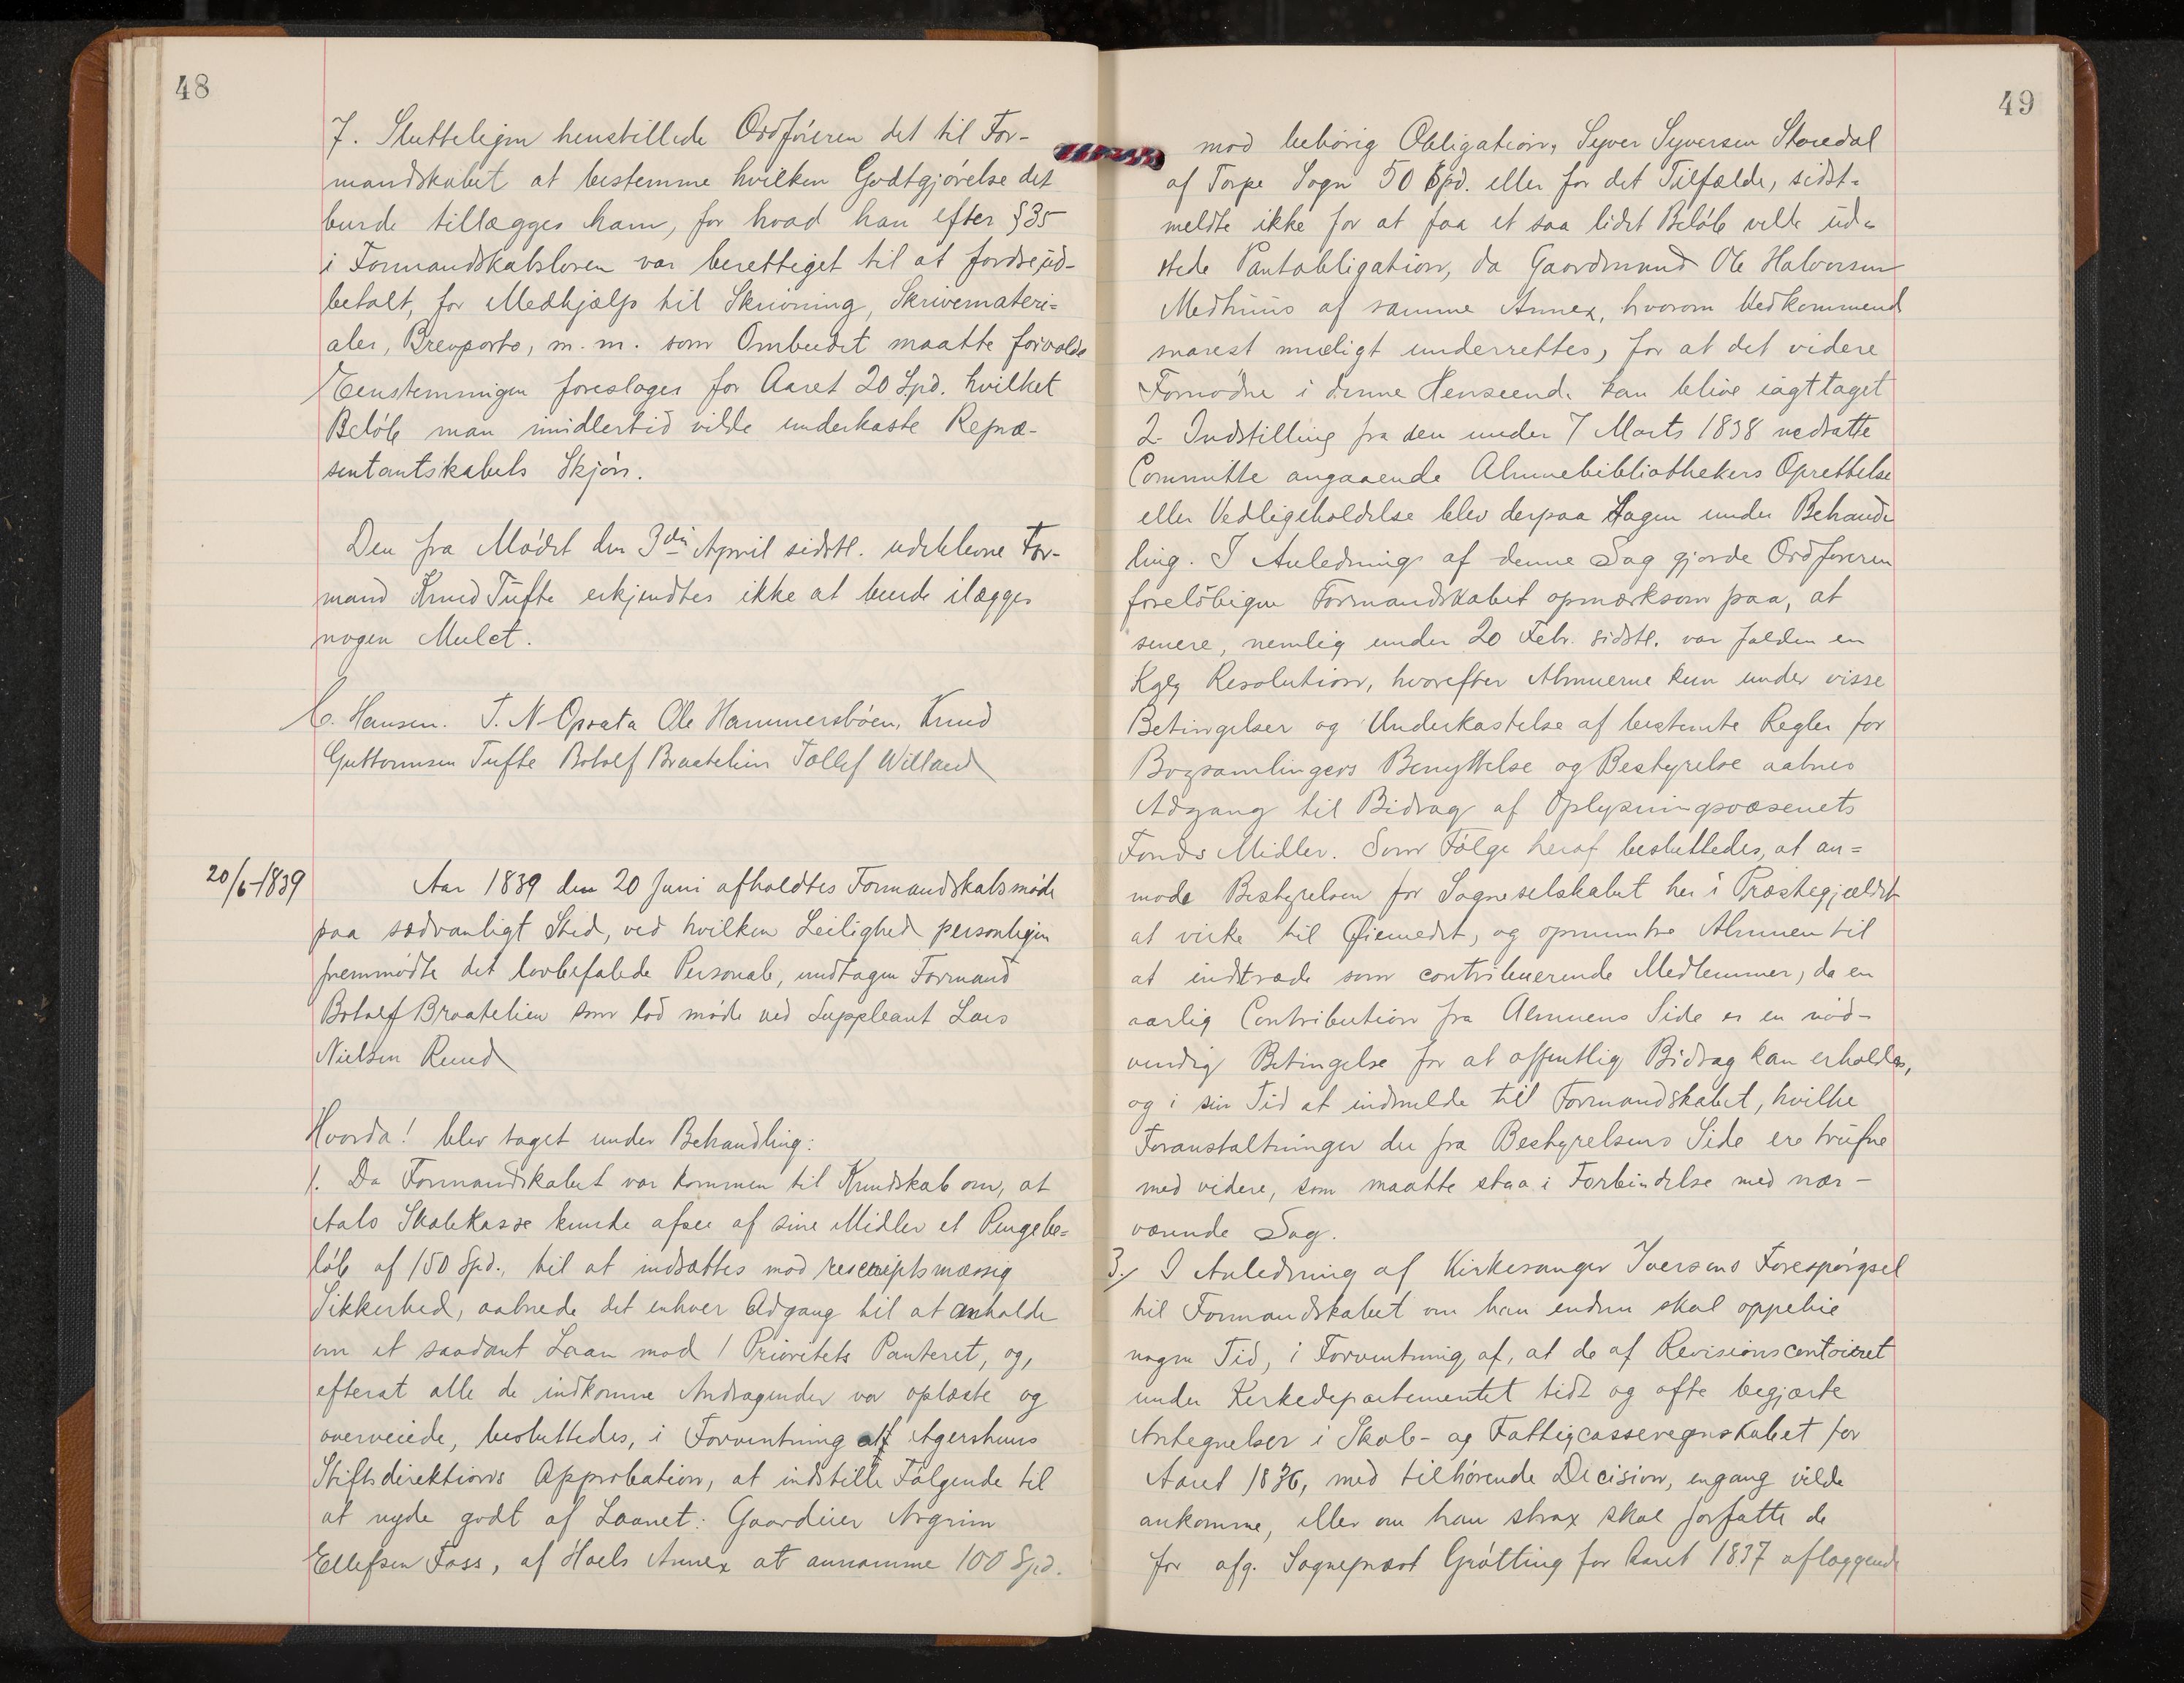 48
7. Slutteligen henstillede Ordføreren det til For-
mandskabet at bestemme hvilken Godtgjørelse det
burde tillægges ham, for hvad han efter § 35
i Formandskabsloven var berettiget til at fordre ud-
betalt, for Medhjælp til Skrivning, Skrivemateri=
aler, Brevporto, m. m. som Ombudet maatte forvolde
Eenstemmigen foreslages for Aaret 20 Spd. hvilket
Beløb man imidlertid vilde underkaste Repræ-
sentantskabets Skjøn.
Den fra Mødet den 3die April sidstl. udeblevne For-
mand Knud Tufte erkjendtes ikke at burde ilægges
nogen Mulct.
C. Hansen. T. N. Opsata Ole Hammersbøen, Knud
Guttormsen Tufte Botolf Braatelien Tollef Willand
20/6-1839
Aar 1839 den 20 Juni afholdtes Formandskabsmøde
paa sædvanligt Sted, ved hvilken Leilighed personligen
fremmødte det lovbefalede Personale, undtagen Formand
Botolf Braatelien som lod møde ved Suppleant Lars
Nielsen Ruud
Hvorda! blev taget under Behandling:
1. Da Formandskabet var kommen til Kundskab om, at
Aals Skolekasse kunde afsee af sine Midler et Pengebe=
løb af 150 Spd., til at indsættes mod resceuiptsmæssig
Sikkerhed, aabnede det enhver Adgang til at anholde
om et saadant Laan mod 1 Prioritets Panteret, og,
efterat alle de indkomne Andragender var oplæste og
overveiede, besluttedes, i Forventning af Agershuus
Stiftsdirektions Approbation, at indstille Følgende til
at nyde godt af Laanet: Gaardeier Argrim
Ellefsen Foss, af Hoels Annex at annamme 100 Spd.
49
mod behørig Obligation, Syver Syversen Storedal
af Torpe Sogn 50 Spd. eller for det Tilfælde, sidst=
meldte ikke for at faa et saa lidet Beløb vilde ud=
stede Pantobligation, da Gaardmand Ole Halvorsen
Medhuus af samme Annex, hvorom Vedkommend
snarest mueligt underrettes, for at det videre
Fornødne i denne Henseende kan blive iagttaget
2. Indstilling fra den under 7 Marts 1838 nedsatte
Committe angaaende Almuebibliothekers Oprettelse
eller Vedligeholdelse blev derpaa tagen under Behand-
ling. I Anledning af denne Sag gjorde Ordføreren
foreløbigen Formandskabet opmærksom paa, at
senere, nemlig under 20 Febr. sidstl. var falden en
Kglg Resolution, hvorefter Almuerne kun under visse
Betingelser og Underkastelse af bestemte Regler for
Bogsamlingers Benyttelse og Bestyrelse aabnes
Adgang til Bidrag af Oplysningsvæsenets
Fonds Midler. Som Følge heraf besluttedes, at an=
mode Bestyrelsen for Sogneselskabet her i Præstegjældet
at virke til Øiemedet, og opmuntre Almuen til
at indtræde som contribuerende Medlemmer, da en
aarlig Contribution fra Almuens Side er en nød-
vendig Betingelse for at offentlig Bidrag kan erholdes,
og i sin Tid at indmelde til Formandskabet, hvilke
Foranstaltninger der fra Bestyrelsens Side ere trufne
med videre, som maatte staa i Forbindelse med nær-
værende Sag.
3./ I Anledning af Kirkesanger Iversens Forespørgsel
til Formandskabet om han endnu skal oppebie
nogen Tid, i Forventning af, at de af Revisionscontoiret
under Kirkedepartementet tidt og ofte begjærte
Antegnelser i Skole- og Fattigcasseregnskabet for
Aaret 1836, med tilhørende Decision, engang vilde
ankomme, eller om han strax skal forfatte de
for afg. Sogneprest Grøtting for Aaret 1837 aflæggende